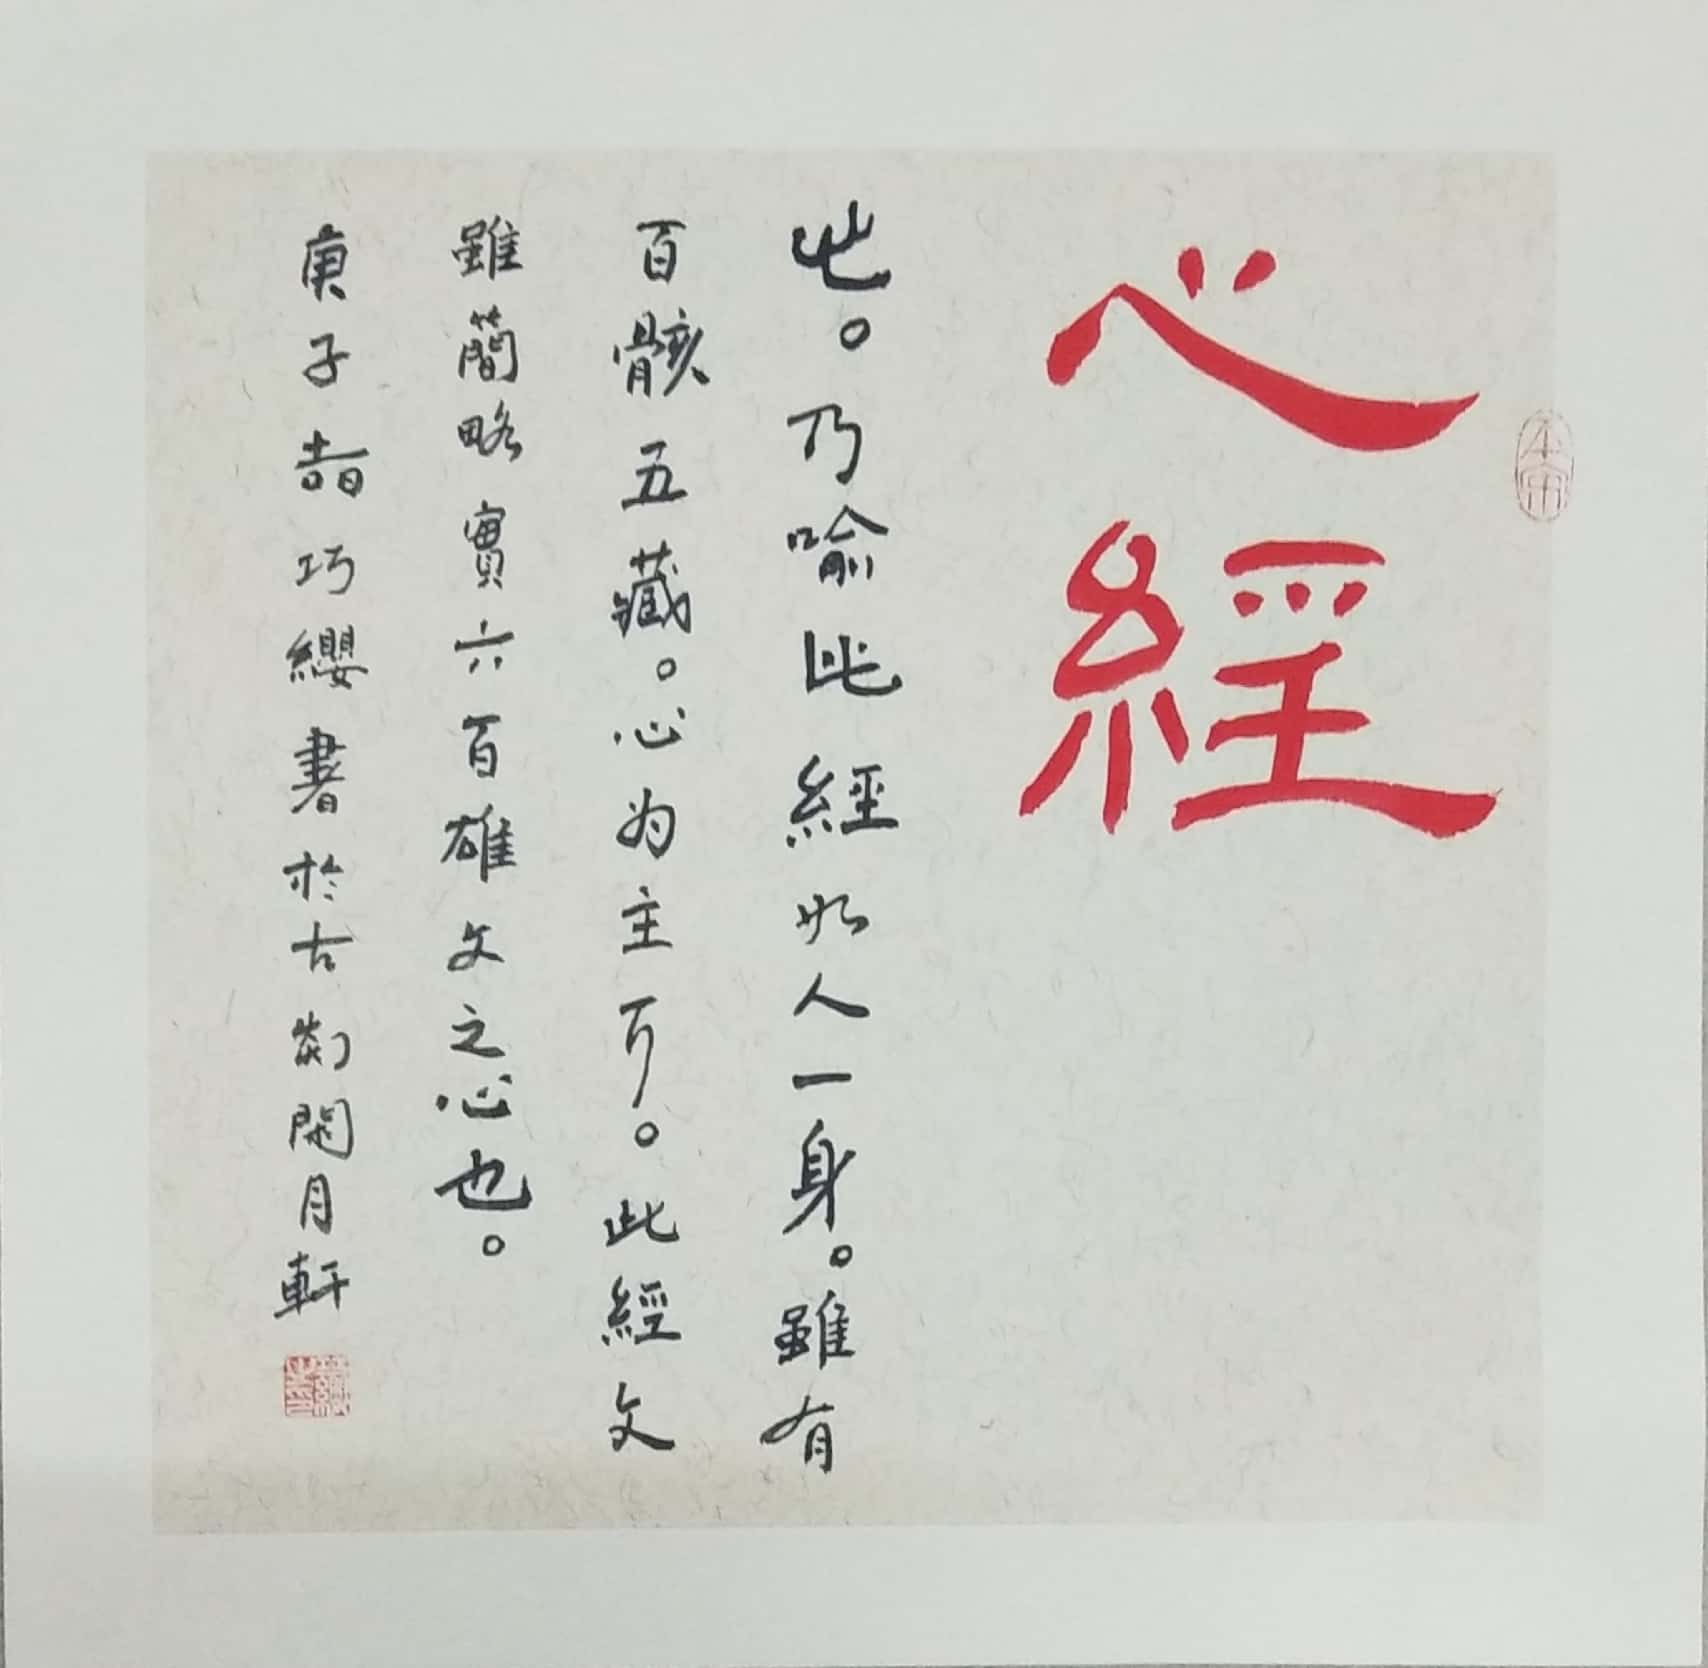 心經
。乃喻此經如人一身。雖有
百骸五藏。心为主耳。此經文
雖簡略實六百雄文之心也。
庚子吉日巧纓書於古剡閑月軒